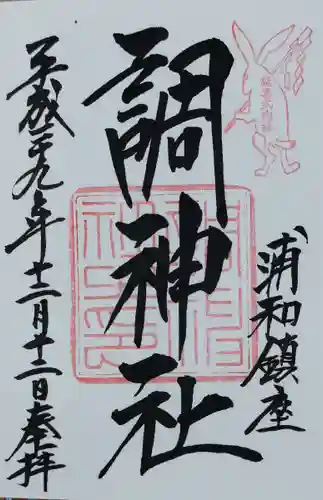 浦和鎮座
調神社
平成二十九年十二月十二日奉拝